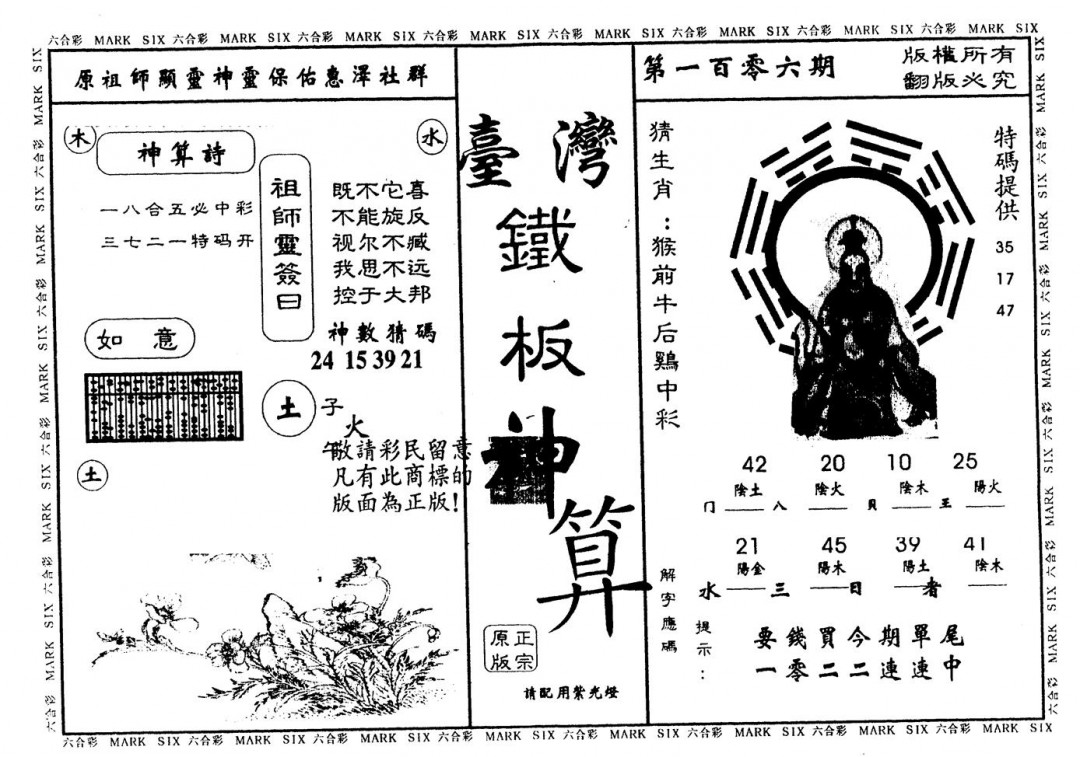 六合彩 MARK SIX 六合彩 MARK SIX 六合彩 MARK SIX 六合彩 MARK SIX 六合彩 MARK SIX 六合彩 MARK SIX 六合彩 MARK SIX 六合彩 MARK SIX
原祖師顯靈神靈保佑惠澤社群
木
水
神算詩
一八合五必中彩
三七二一特码开
祖師靈簽曰
既不它喜
不能旋反
视尔不臧
我思不远
控于大邦
神數猜碼
24 15 39 21
如意
土
子
火
午
敬請彩民留意
凡有此商標的
版面為正版!
土
臺灣
鐵
板
神
算
正宗
原版
請配用紫光燈
第一百零六期
版權所有
翻版必究
猜生肖:猴前牛后鷄中彩
特碼提供
35
17
47
42 20 10 25
陰土 陰火 陰木 陽火
门 八 貝 王
21 45 39 41
陽金 陽木 陽土 陰木
水 三 日 者
解字應碼
提示:
要錢買今期單尾
一零二二連連中
六合彩 MARK SIX 六合彩 MARK SIX 六合彩 MARK SIX 六合彩 MARK SIX 六合彩 MARK SIX 六合彩 MARK SIX 六合彩 MARK SIX 六合彩 MARK SIX